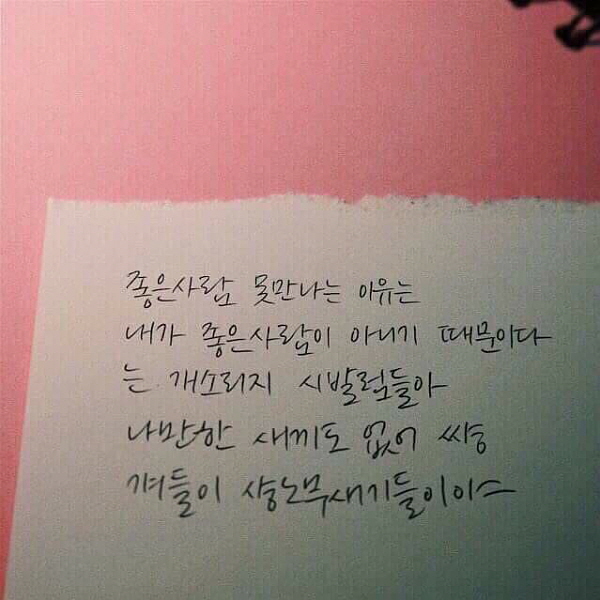 좋은사람 못만나는 이유는
내가 좋은사람이 아니기 때문이다
는 개소리지 시발럼들아
나만한 새끼도 없어 쌰숭
겨들이 샹노무새기들이이스